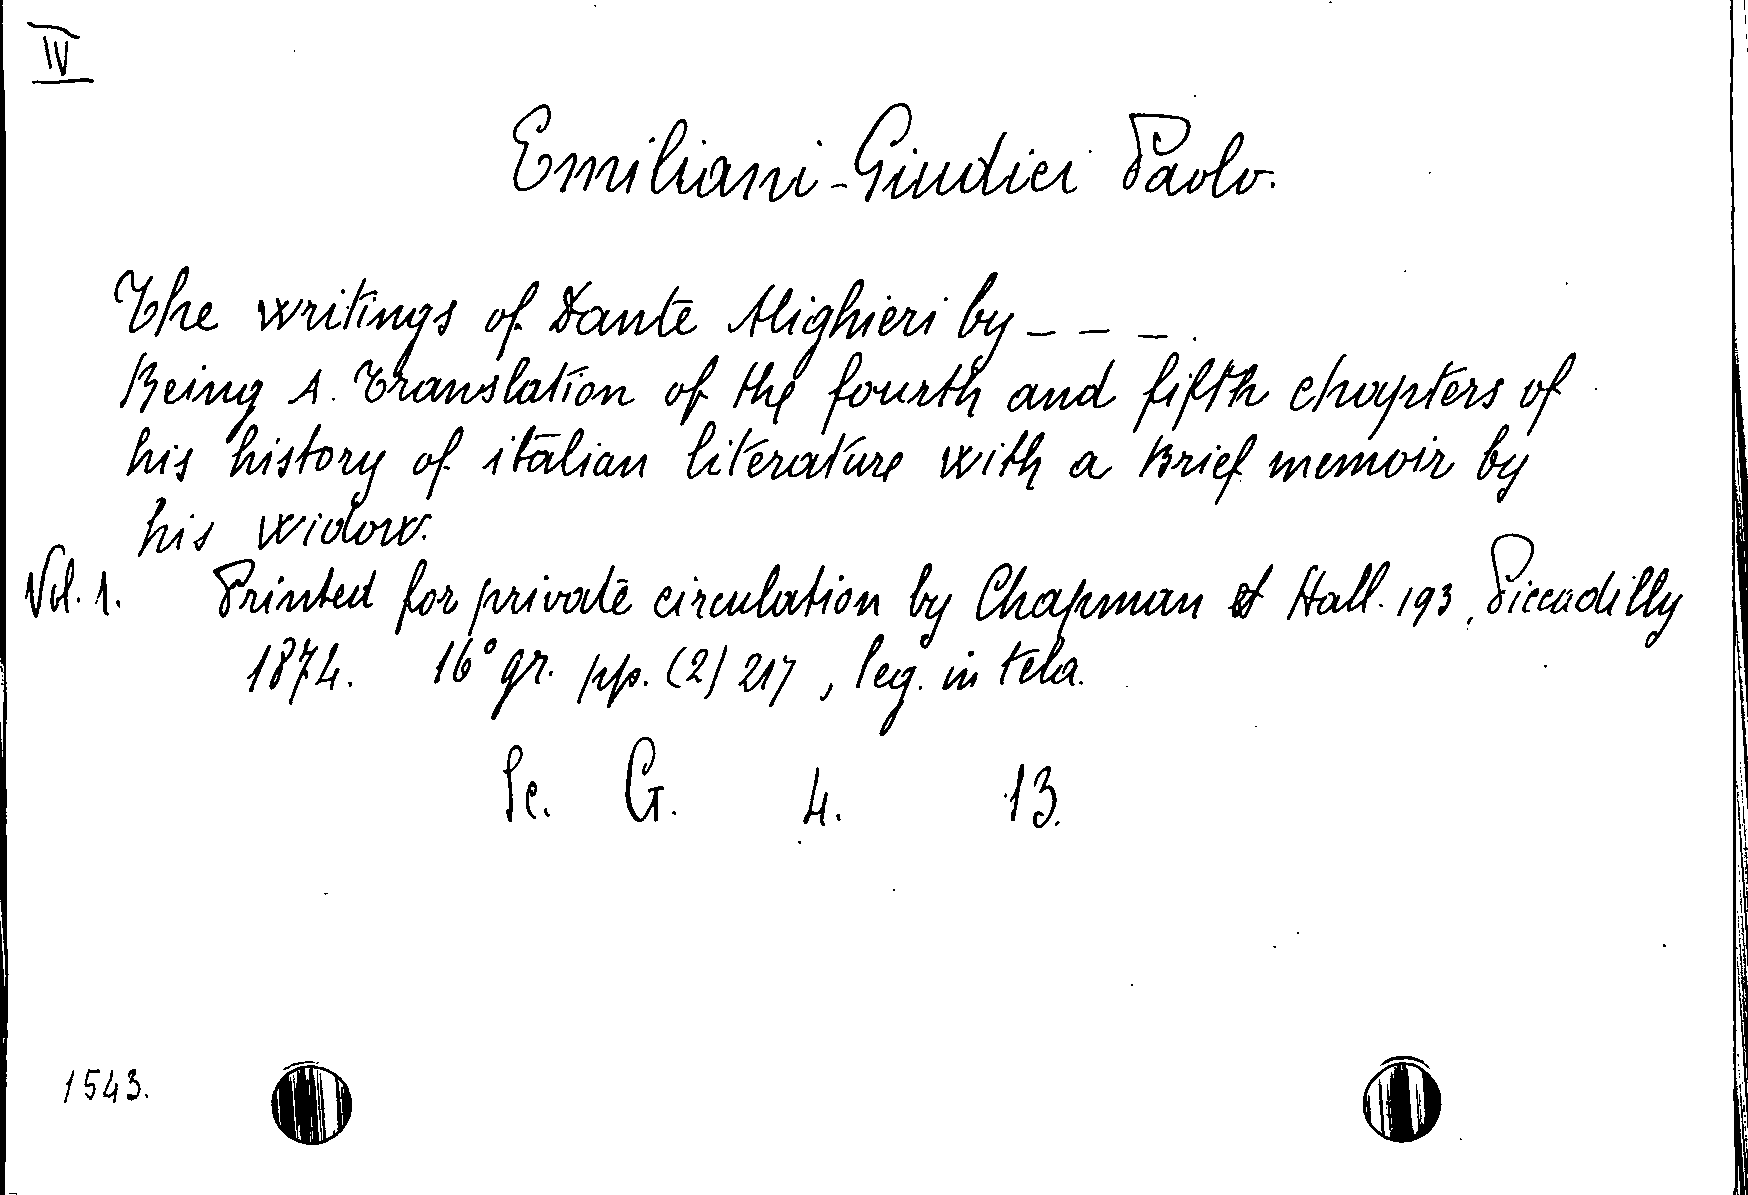 IV
Emiliani-Giudici Paolo.
The writings of Dante Alighieri by _ _ _ .
Being A. Translation of the fourth and fifth chapters of
his history of italian literature with a Brief memoir by
his widow.
Vol. 1. Printed for private circulation by Chapman et Hall. 193, Piccadilly
1874. 16° gr. pp. (2) 217, leg. in tela.
Sc. G. 4. 13.
1543.